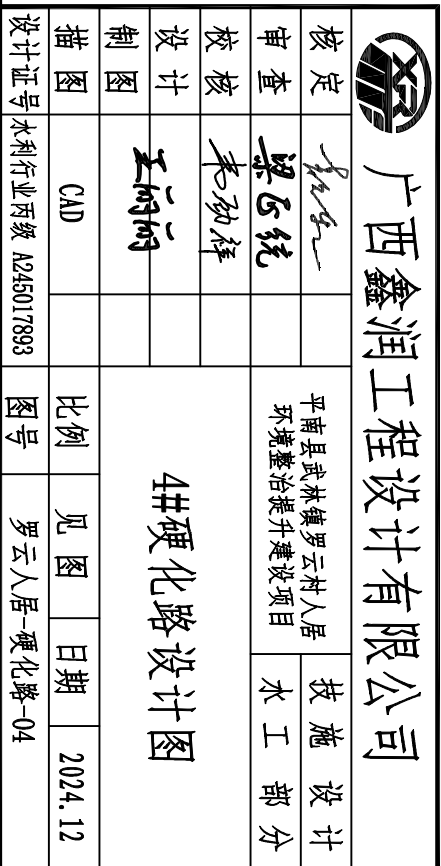 XR
广西鑫润工程设计有限公司
核定
平南县武林镇罗云村人居
环境整治提升建设项目
技施 设计
审查 梁正统
水工 部分
校核
4#硬化路设计图
设计
制图
描图 CAD
比例 见图 日期 2024.12
设计证号 水利行业丙级 A245017893
图号 罗云人居-硬化路-04